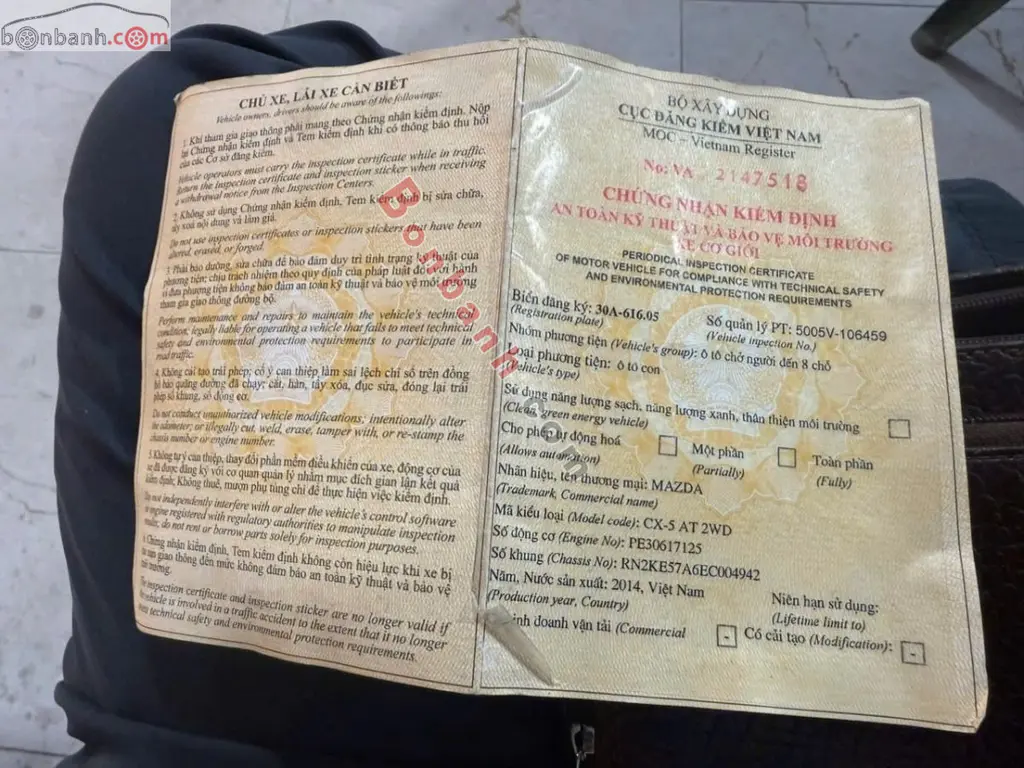 bonbanh.com
CHỦ XE, LÁI XE CẦN BIẾT
Vehicle owners, drivers should be aware of the followings:
1. Khi tham gia giao thông phải mang theo Chứng nhận kiểm định. Nộp
lại Chứng nhận kiểm định và Tem kiểm định khi có thông báo thu hồi
của các Cơ sở đăng kiểm.
Vehicle operators must carry the inspection certificate while in traffic.
Return the inspection certificate and inspection sticker when receiving
a withdrawal notice from the Inspection Centers.
2. Không sử dụng Chứng nhận kiểm định, Tem kiểm định bị sửa chữa,
tẩy xoá nội dung và làm giả.
Do not use inspection certificates or inspection stickers that have been
altered, erased, or forged.
3. Phải bảo dưỡng, sửa chữa để bảo đảm duy trì tình trạng kỹ thuật của
phương tiện; chịu trách nhiệm theo quy định của pháp luật đối với hành
vi đưa phương tiện không bảo đảm an toàn kỹ thuật và bảo vệ môi trường
tham gia giao thông đường bộ.
Perform maintenance and repairs to maintain the vehicle's technical
condition; legally liable for operating a vehicle that fails to meet technical
safety and environmental protection requirements to participate in
road traffic.
4. Không cải tạo trái phép; cố ý can thiệp làm sai lệch chỉ số trên đồng
hồ báo quãng đường đã chạy; cắt, hàn, tẩy xóa, đục sửa, đóng lại trái
phép số khung, số động cơ.
Do not conduct unauthorized vehicle modifications; intentionally alter
the odometer; or illegally cut, weld, erase, tamper with, or re-stamp the
chasis number or engine number.
5. Không tự ý can thiệp, thay đổi phần mềm điều khiển của xe, động cơ của
xe đã được đăng ký với cơ quan quản lý nhằm mục đích gian lận kết quả
kiểm định; Không thuê, mượn phụ tùng chỉ để thực hiện việc kiểm định.
Do not independently interfere with or alter the vehicle's control software
or engine registered with regulatory authorities to manipulate inspection
results; do not rent or borrow parts solely for inspection purposes.
6. Chứng nhận kiểm định, Tem kiểm định không còn hiệu lực khi xe bị
tai nạn giao thông đến mức không đảm bảo an toàn kỹ thuật và bảo vệ
môi trường.
The inspection certificate and inspection sticker are no longer valid if
the vehicle is involved in a traffic accident to the extent that it no longer
meets technical safety and environmental protection requirements.
BỘ XÂY DỰNG
CỤC ĐĂNG KIỂM VIỆT NAM
MOC – Vietnam Register
No: VA 2147518
CHỨNG NHẬN KIỂM ĐỊNH
AN TOÀN KỸ THUẬT VÀ BẢO VỆ MÔI TRƯỜNG
XE CƠ GIỚI
PERIODICAL INSPECTION CERTIFICATE
OF MOTOR VEHICLE FOR COMPLIANCE WITH TECHNICAL SAFETY
AND ENVIRONMENTAL PROTECTION REQUIREMENTS
Biển đăng ký: 30A-616.05 Số quản lý PT: 5005V-106459
(Registration plate) (Vehicle inspection No.)
Nhóm phương tiện (Vehicle's group): ô tô chở người đến 8 chỗ
Loại phương tiện: ô tô con
(Vehicle's type)
Sử dụng năng lượng sạch, năng lượng xanh, thân thiện môi trường
(Clean, green energy vehicle)
Cho phép tự động hoá Một phần Toàn phần
(Allows automation) (Partially) (Fully)
Nhãn hiệu, tên thương mại: MAZDA
(Trademark, Commercial name)
Mã kiểu loại (Model code): CX-5 AT 2WD
Số động cơ (Engine No): PE30617125
Số khung (Chassis No): RN2KE57A6EC004942
Năm, Nước sản xuất: 2014, Việt Nam Niên hạn sử dụng:
(Production year, Country) (Lifetime limit to)
Kinh doanh vận tải (Commercial - Có cải tạo (Modification): -
Bonbanh.com